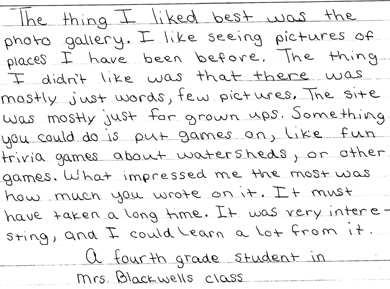 The thing I liked best was the
photo gallery. I like seeing pictures of
places I have been before. The thing
I didn't like was that there was
mostly just words, few pictures. The site
was mostly just for grown ups. Something
you could do is put games on, like fun
trivia games about watersheds, or other
games. What impressed me the most was
how much you wrote on it. It must
have taken a long time. It was very intere-
sting, and I could learn a lot from it.
A fourth grade student in
Mrs. Blackwells class